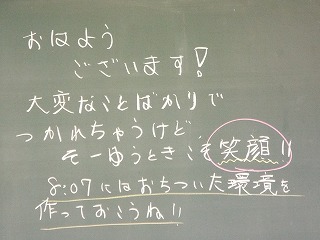 おはよう
ございます!
大変なことばかりで
つかれちゃうけど
そーゆうときこそ笑顔!!
8:07にはおちついた環境を
作っておこうね!!